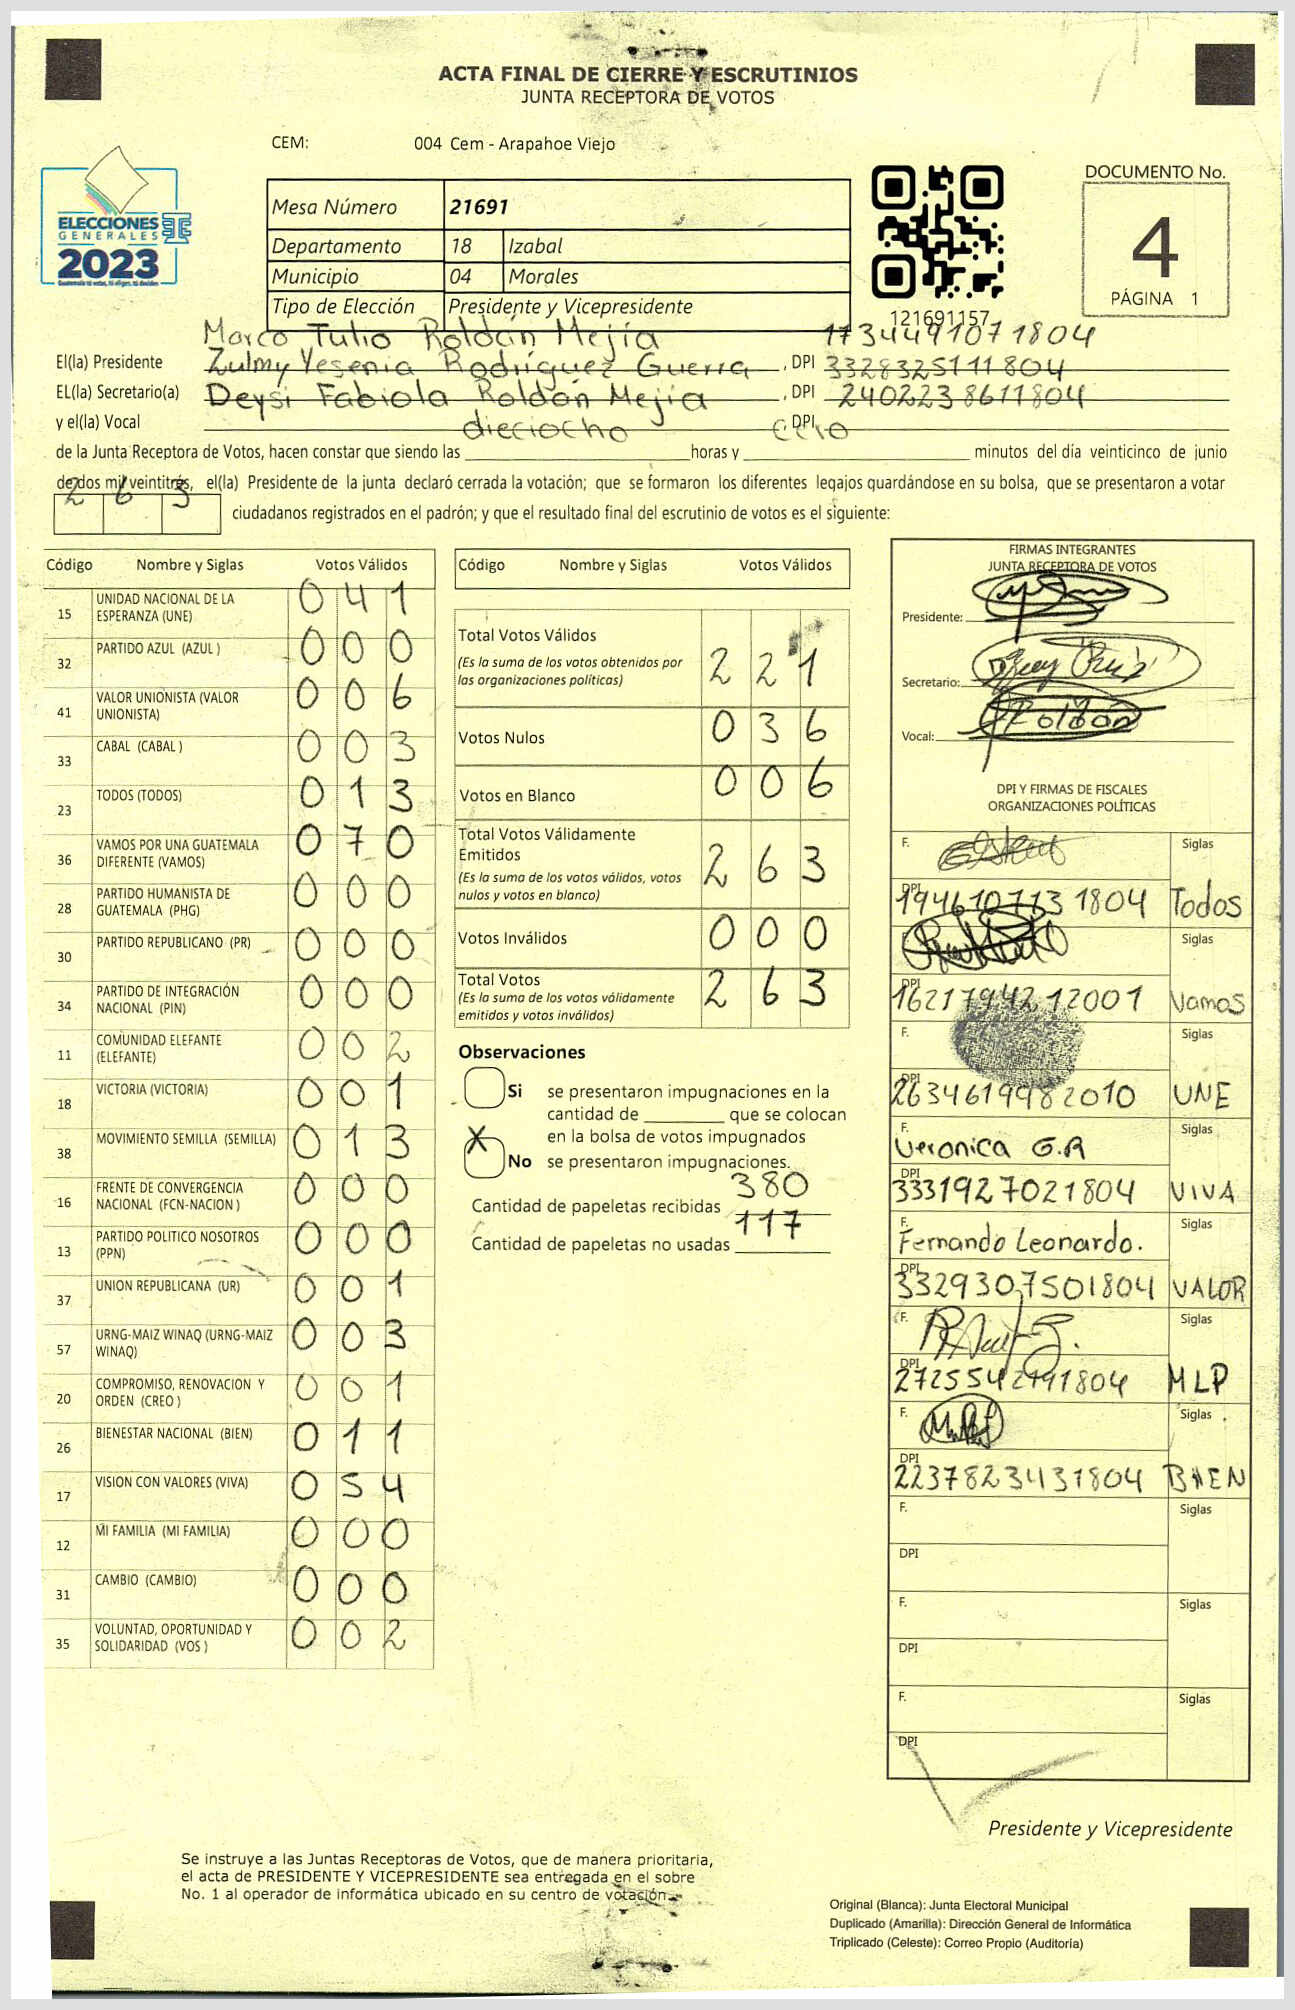 ACTA FINAL DE CIERRE Y ESCRUTINIOS
JUNTA RECEPTORA DE VOTOS
CEM: 004 Cem - Arapahoe Viejo
ELECCIONES
GENERALES
2023
Guatemala tú votas, tú eliges, tú decides
Mesa Número 21691
Departamento 18 Izabal
Municipio 04 Morales
Tipo de Elección Presidente y Vicepresidente
121691157
DOCUMENTO No.
4
PÁGINA 1
Marco Tulio Roldán Mejía 1734491071804
El(la) Presidente Zulmy Yesenia Rodríguez Guerra , DPI 3328325111804
EL(la) Secretario(a) Deysi Fabiola Roldán Mejía , DPI 2402238611804
y el(la) Vocal , DPI
dieciocho
de la Junta Receptora de Votos, hacen constar que siendo las horas y minutos del día veinticinco de junio
de dos mil veintitrés, el(la) Presidente de la junta declaró cerrada la votación; que se formaron los diferentes legajos guardándose en su bolsa, que se presentaron a votar
263 ciudadanos registrados en el padrón; y que el resultado final del escrutinio de votos es el siguiente:
Código Nombre y Siglas Votos Válidos
15 UNIDAD NACIONAL DE LA ESPERANZA (UNE) 041
32 PARTIDO AZUL (AZUL ) 000
41 VALOR UNIONISTA (VALOR UNIONISTA) 006
33 CABAL (CABAL ) 003
23 TODOS (TODOS) 013
36 VAMOS POR UNA GUATEMALA DIFERENTE (VAMOS) 070
28 PARTIDO HUMANISTA DE GUATEMALA (PHG) 000
30 PARTIDO REPUBLICANO (PR) 000
34 PARTIDO DE INTEGRACIÓN NACIONAL (PIN) 000
11 COMUNIDAD ELEFANTE (ELEFANTE) 002
18 VICTORIA (VICTORIA) 001
38 MOVIMIENTO SEMILLA (SEMILLA) 013
16 FRENTE DE CONVERGENCIA NACIONAL (FCN-NACION ) 000
13 PARTIDO POLITICO NOSOTROS (PPN) 000
37 UNION REPUBLICANA (UR) 001
57 URNG-MAIZ WINAQ (URNG-MAIZ WINAQ) 003
20 COMPROMISO, RENOVACION Y ORDEN (CREO ) 001
26 BIENESTAR NACIONAL (BIEN) 011
17 VISION CON VALORES (VIVA) 054
12 MI FAMILIA (MI FAMILIA) 000
31 CAMBIO (CAMBIO) 000
35 VOLUNTAD, OPORTUNIDAD Y SOLIDARIDAD (VOS ) 002
Código Nombre y Siglas Votos Válidos
Total Votos Válidos 221
(Es la suma de los votos obtenidos por
las organizaciones políticas)
Votos Nulos 036
Votos en Blanco 006
Total Votos Válidamente
Emitidos 263
(Es la suma de los votos válidos, votos
nulos y votos en blanco)
Votos Inválidos 000
Total Votos 263
(Es la suma de los votos válidamente
emitidos y votos inválidos)
Observaciones
Si se presentaron impugnaciones en la
cantidad de que se colocan
en la bolsa de votos impugnados
X No se presentaron impugnaciones.
Cantidad de papeletas recibidas 380
Cantidad de papeletas no usadas 117
FIRMAS INTEGRANTES
JUNTA RECEPTORA DE VOTOS
Presidente:
Secretario:
Vocal: Roldán
DPI Y FIRMAS DE FISCALES
ORGANIZACIONES POLÍTICAS
F. Siglas
DPI 1946107131804 Todos
F. Siglas
DPI 1621794212001 Vamos
F. Siglas
DPI 2634619982010 UNE
F. Veronica G.R Siglas
DPI 3331927021804 VIVA
F. Fernando Leonardo. Siglas
DPI 3329307501804 VALOR
F. Siglas
DPI MLP
F. Siglas
DPI 2237823431804 BIEN
F. Siglas
DPI
F. Siglas
DPI
F. Siglas
DPI
Presidente y Vicepresidente
Se instruye a las Juntas Receptoras de Votos, que de manera prioritaria,
el acta de PRESIDENTE Y VICEPRESIDENTE sea entregada en el sobre
No. 1 al operador de informática ubicado en su centro de votación.
Original (Blanca): Junta Electoral Municipal
Duplicado (Amarilla): Dirección General de Informática
Triplicado (Celeste): Correo Propio (Auditoría)